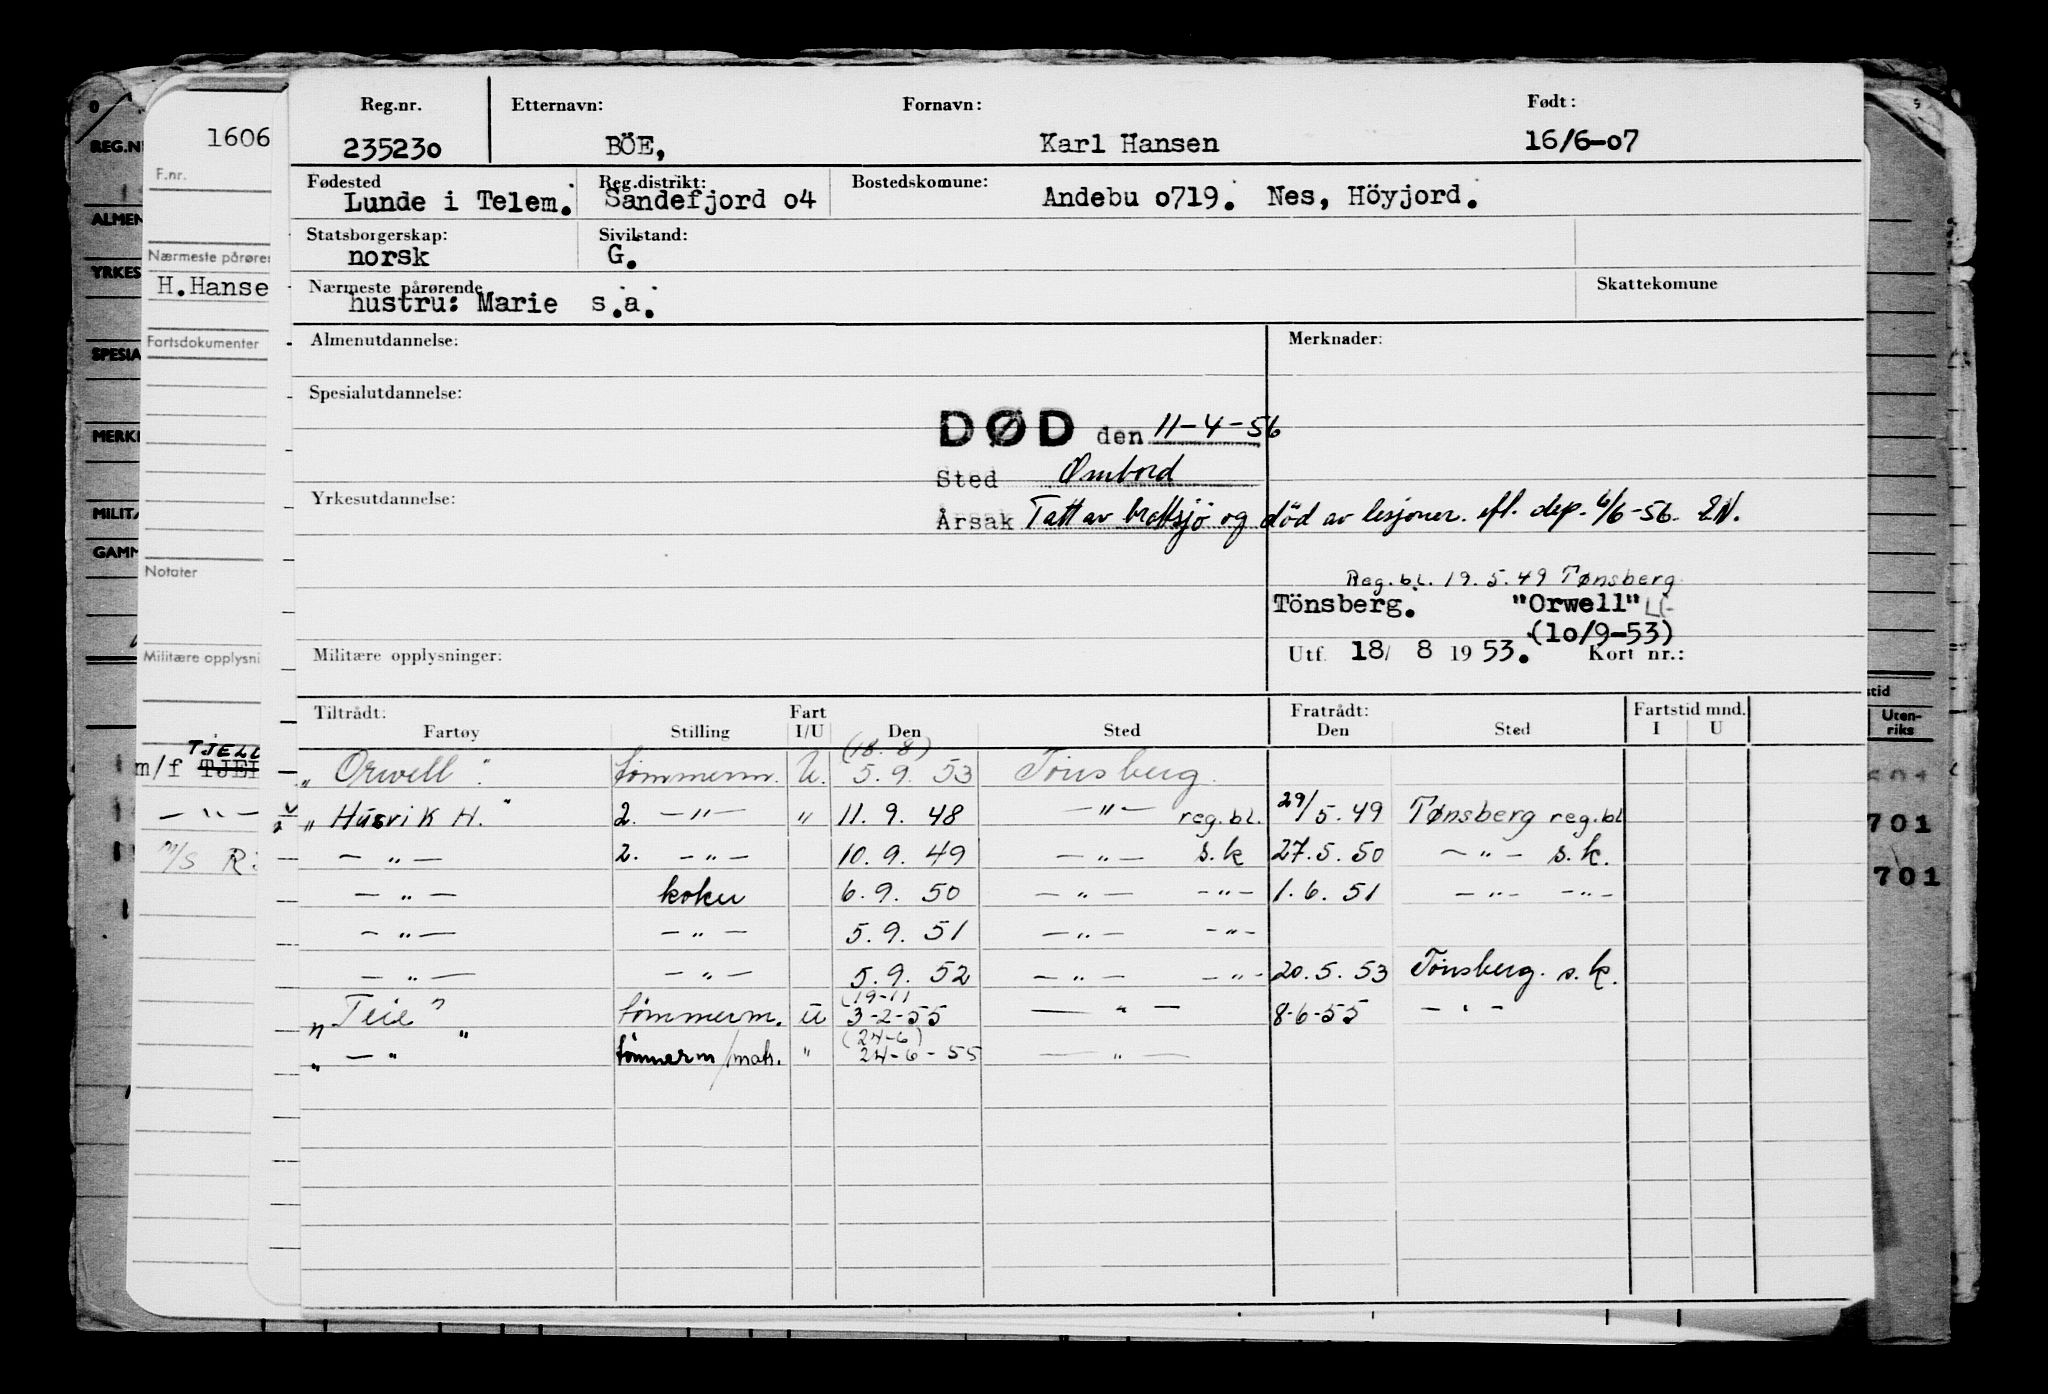 Reg.nr. Etternavn: Fornavn: Født:
235230 BÖE, Karl Hansen 16/6-07
Fødested Reg.distrikt: Bostedskomune:
Lunde i Telem. Sandefjord o4 Andebu o719. Nes, Höyjord.
Statsborgerskap: Sivilstand:
norsk G.
Nærmeste pårørende Skattekomune
hustru: Marie s.a.
Almenutdannelse: Merknader:
Spesialutdannelse:
DØD den 11-4-56
Sted Ombord
Yrkesutdannelse:
Årsak Tatt av brottsjö og död av lesjoner. efl. dep. 6/6-56. EN.
Reg. bl. 19.5.49 Tønsberg
Tönsberg. "Orwell"
(1o/9-53)
Militære opplysninger: Utf. 18/ 8 1953. Kort nr.:
Tiltrådt: Fart Fratrådt: Fartstid mnd.
Fartøy Stilling I/U Den Sted Den Sted I U
(18. 8)
„ Orwell" tømmerm. U. 5.9.53 Tönsberg.
„ Husvik H." 2. —"— " 11.9.48 —"— reg.bl. 29/5.49 Tønsberg reg.bl
—"— 2. —"— 10.9.49 —"— s.k 27.5.50 —"— s.k.
—"— koker 6.9.50 —"— —"— 1.6.51 —"— —"—
—"— —"— 5.9.51 —"— —"—
—"— —"— 5.9.52 —"— —"— 20.5.53 Tönsberg. s.k.
(19-11)
„ Teie" tømmerm. U 3-2-55 —"— 8-6-55 —"—
(24-6)
„ —"— " tömmerm/mats. " 24-6-55 —"—
1606
F.nr.
Nærmeste pårører
H.Hanse
Fartsdokumenter
Notater
Militære opplysni
TJELL
m/f TJEL
—"—
M/S R
REG.N
ALMEN
YRKES
SPESIA
MERK
MILIT
GAMM
tid
Uten-
riks
701
701